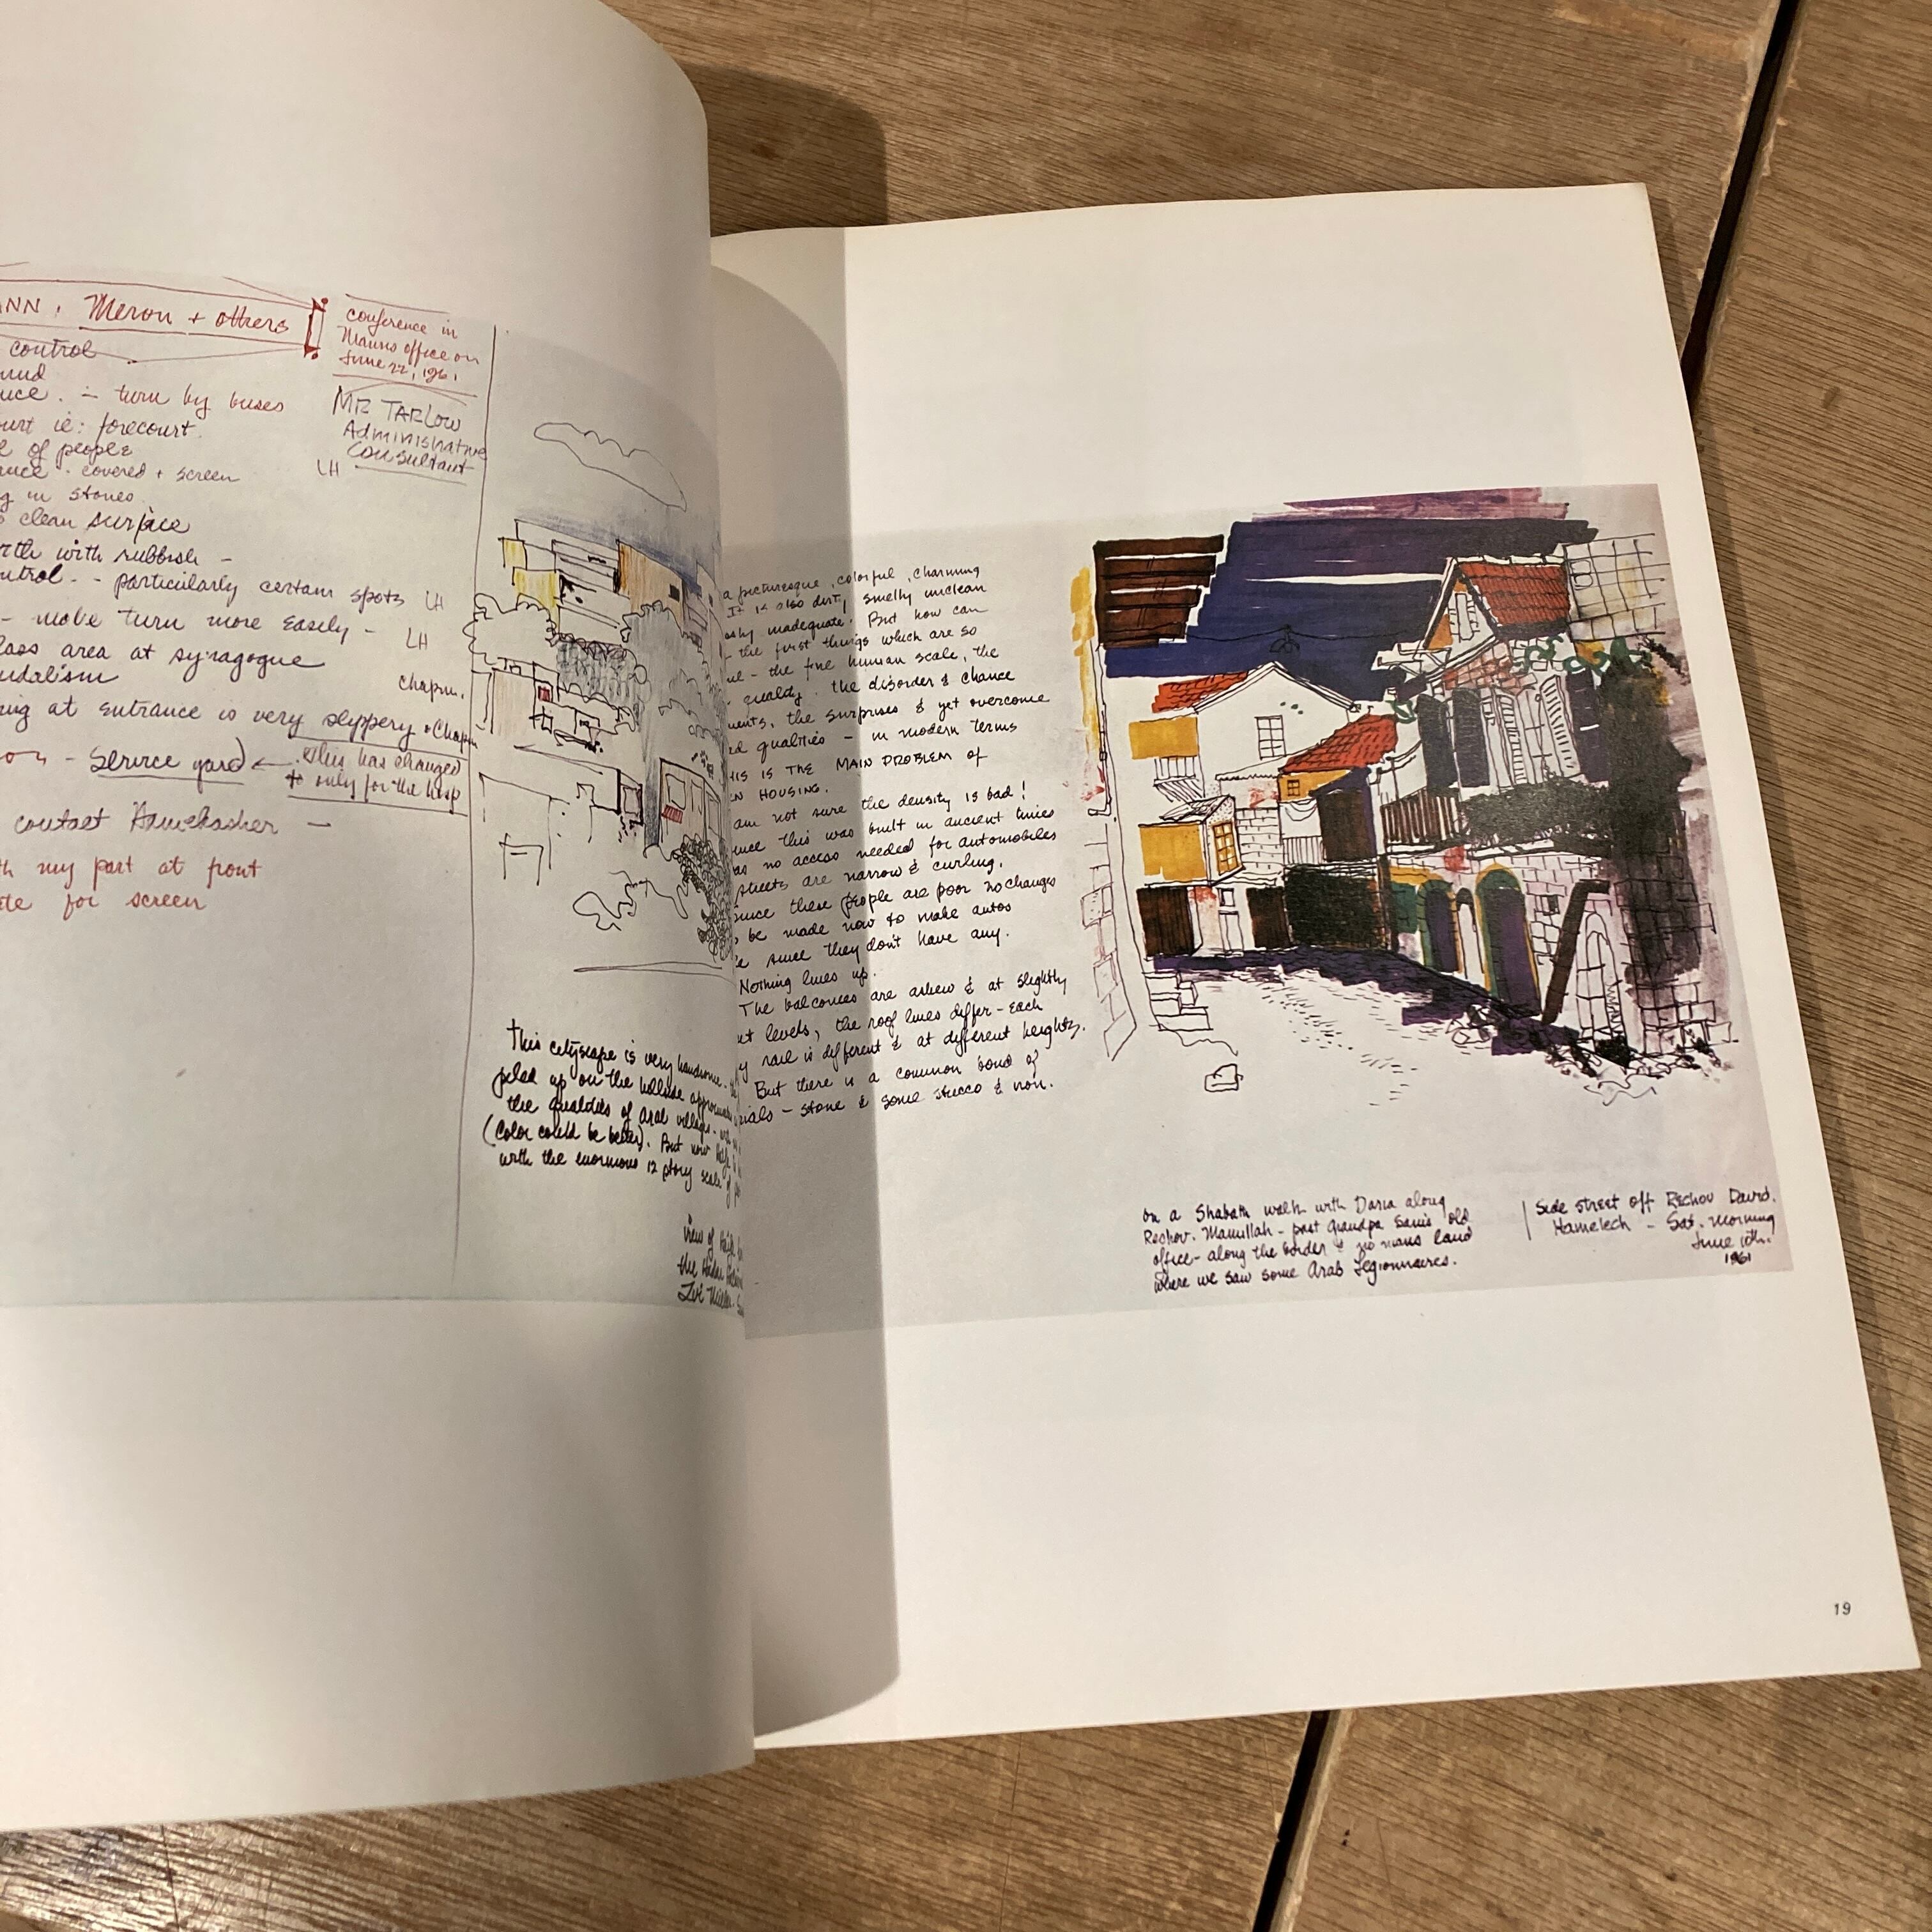 NN, Meron + others
control
conference in
Manns office on
June 22, 1961
MR TARLOW
Administrative
Consultant
LH
turn by buses
ie: forecourt.
of people
covered + screen
in stones
clean surface
with rubbish -
- particularly certain spots LH
- make turn more easily - LH
area at synagogue
Chapm.
at entrance is very slippery Chapm
- Service yard ← this has changed
to only for the hosp
contact
my part at front
for screen
This cityscape is very handsome.
piled up on the hillside
the qualities of arab village.
(Color could be better). But now
with the enormous 12 story scale of
view of
the
a picturesque, colorful, charming
It is also dirty smelly unclean
inadequate. But how can
the first things which are so
- the fine human scale, the
quality. the disorder & chance
the surprises & yet overcome
qualities - in modern terms
THIS IS THE MAIN PROBLEM OF
HOUSING.
am not sure the density is bad!
this was built in ancient times
no access needed for automobiles
streets are narrow & curling.
since these people are poor no changes
be made now to make autos
since they don't have any.
Nothing lines up.
The balconies are askew & at slightly
levels, the roof lines differ - each
rail is different & at different heights.
But there is a common bond of
- stone & some stucco & iron.
on a Shabath walk with Daria along
Rechov. Mamillah - past Grandpa Sam's old
office - along the border & no mans land
where we saw some Arab Legionnaires.
Side street off Rechov David.
Hamelech - Sat. morning
June 10th.
1961
19